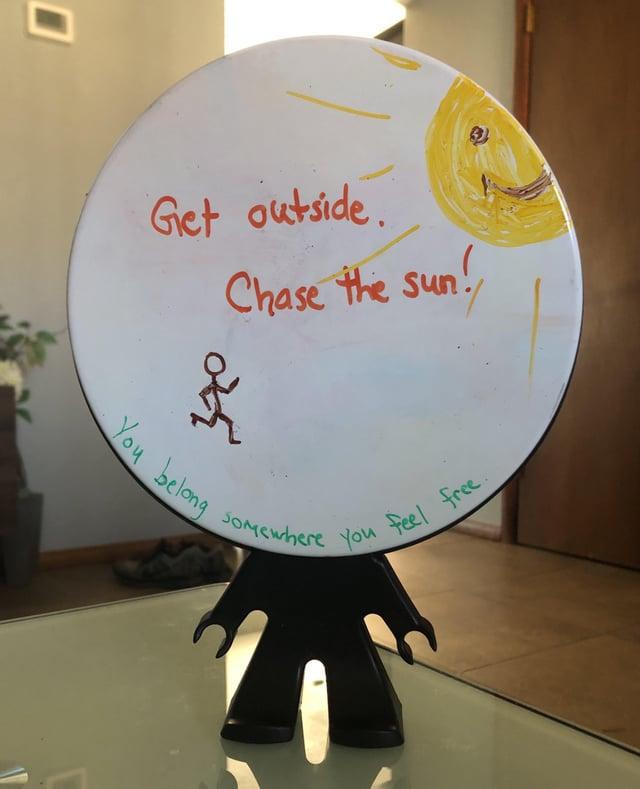 Get outside.
Chase the sun!
You belong somewhere you feel free.